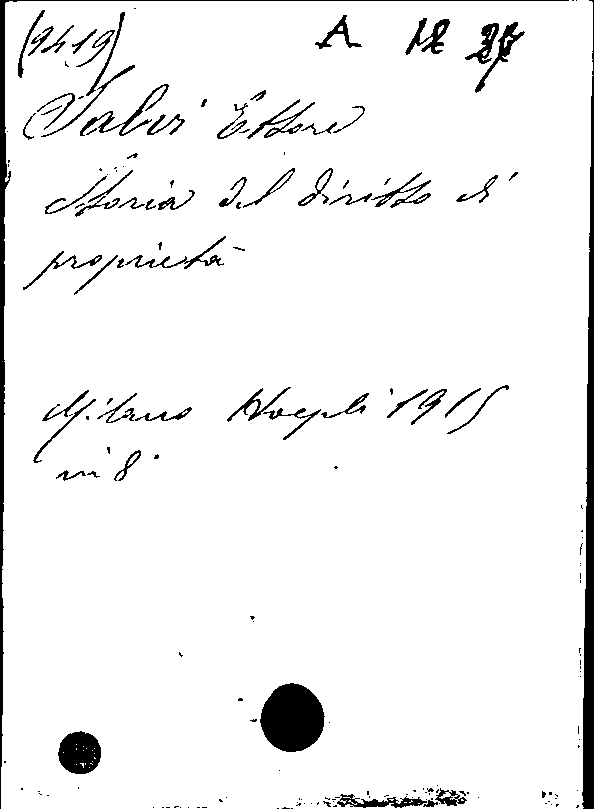 (9419) A 12
Salvi Ettore
Storia del diritto di
proprietà
Milano Hoepli 1915
in 8°